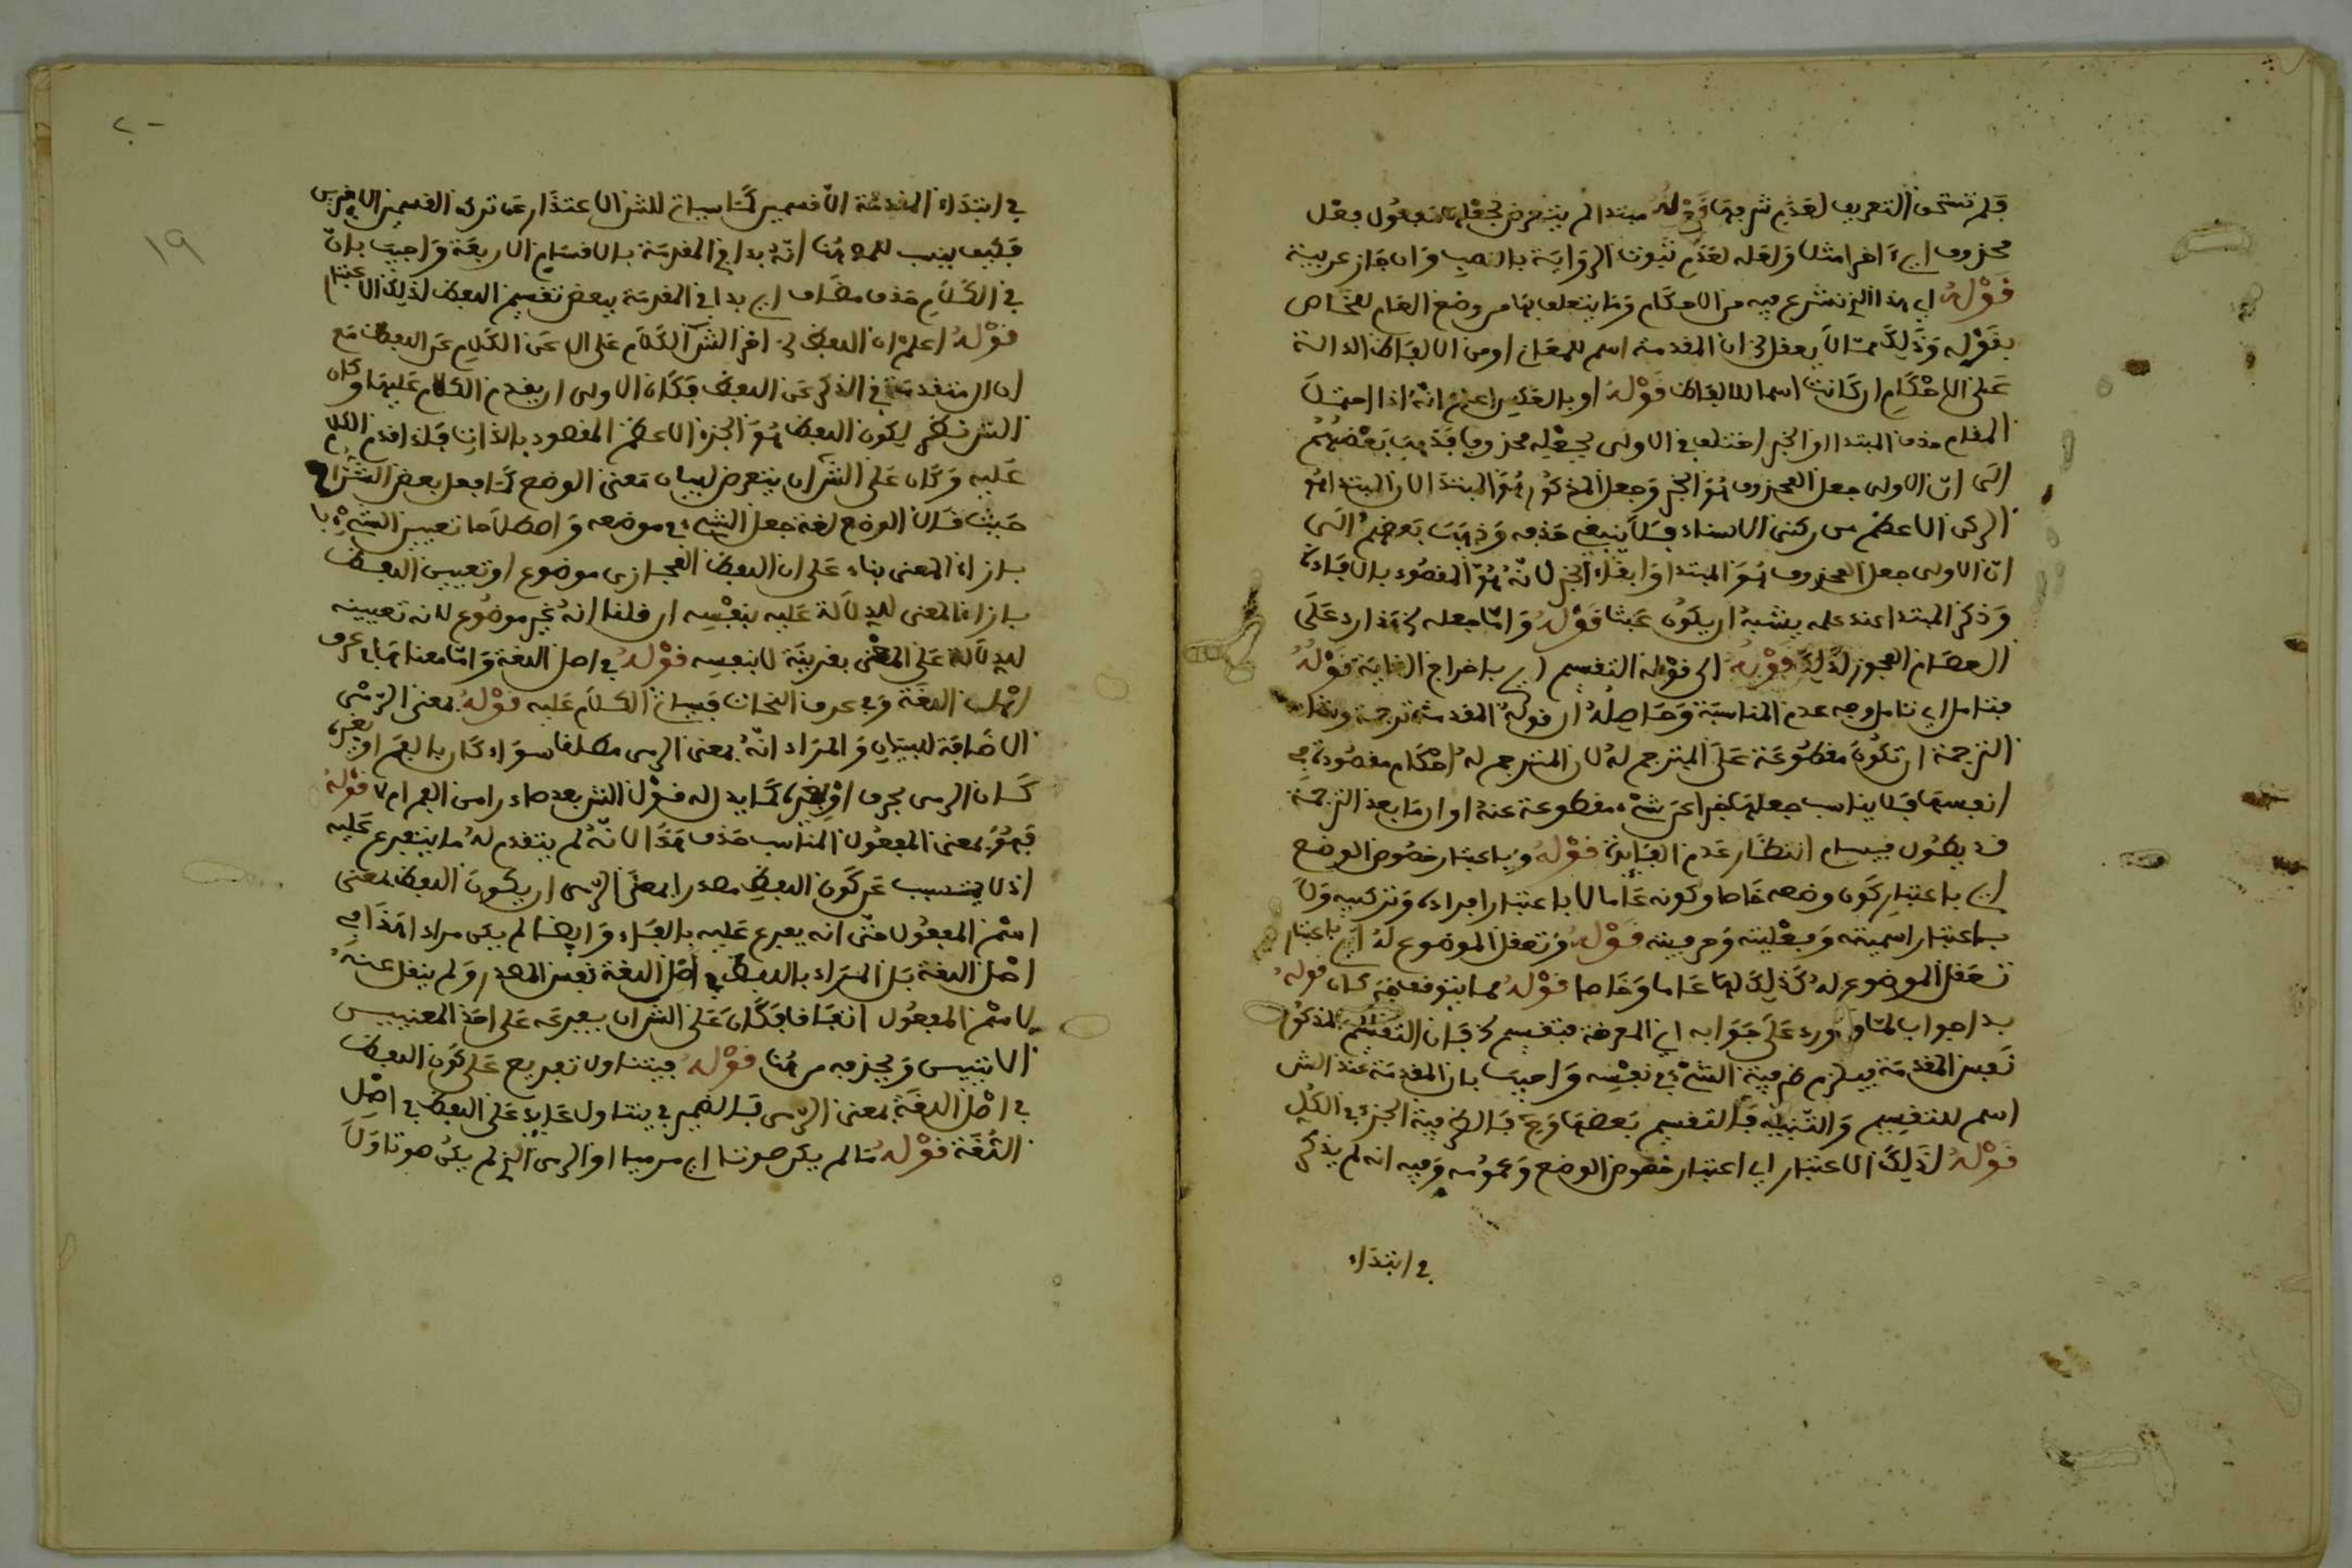 فلم تستحق التعريف لعدم شرفها قوله مبتدا لم يتعرض لجعله مفعول فعل
محذوف اي اقرا مثلا ولعله لعدم ثبوت الرواية بالنصب وان جاز عربية
قوله اي هذا الذي نشرع فيه من الاحكام وما يتعلق بها من وضع العام للخاص
بقوله وذلك مما لا يعقل لان المقدمة اسم للمعاني او من الالفاظ الدالة
على الاحكام ان كانت اسما للالفاظ قوله او بالعكس اعلم انه اذا احتمل
المقام حذف المبتدا او الخبر اختلف في الاولى بجعله محذوفا فذهب بعضهم
الى ان الاولى جعل المحذوف هو الخبر وجعل المذكور هو المبتدا لان المبتدا هو
الركن الاعظم من ركني الاسناد فلا ينبغي حذفه وذهب بعضهم الى
ان الاولى جعل المحذوف هو المبتدا وابقاء الخبر لانه هو المقصود بالافادة
وذكر المبتدا عند علمه يشبه ان يكون عبثا قوله وامّا جعله لخ هذا رد على
العصام المجوز لذلك قوله الى قوله التقسيم اي باخراج الغاية قوله
فتامل اي تامل وجه عدم المناسبة وحاصله ان قوله المقدمة ترجمة وشان
الترجمة ان تكون مقطوعة على المترجم له لان المترجم له احكام مقصودة في
انفسها فلا يناسب جعلها خبرا عن شيء مقطوعة عنه او ان ما بعد الترجمة
قد يطول فيسام انتظار عدم الفايدة قوله وباعتبار خصوص الوضع
اي باعتبار كون وضعه خاصا وكونه عاما لا باعتبار افراده وتركيبه ولا
باعتبار اسميته وفعليته وحرفيته قوله وتعقل الموضوع له اي باعتبار
تعقل الموضوع له كذلك اما عاما وخاصا قوله مما يتوقف كان قوله
بدا جواب لما ورد على جوابه اي المعرفة فتقسيم لخ فان التقسيم المذكور
نفس المقدمة فيلزم ظرفية الشيء في نفسه واجيب بان المقدمة عند الش
اسم للتقسيم والتنبيه فالتقسيم بعضها وح فالظرفية الجزء في الكل
قوله لذلك الاعتبار اي اعتبار خصوص الوضع وعمومه وفيه انه لم يذكر
في ابتداء
٢٠
١٩
في ابتداء المقدمة الا قسمين كما سياتي للش الاعتذار عن ترك القسمين الاخرين
فكيف ينسب للمص هنا انه بدا في المقدمة بالاقسام الاربعة واجيب بان
في الكلام حذف مضاف اي بدا في المقدمة ببعض تقسيم اللفظ لذلك الاعتبار
قوله اعلم ان اللفظ لخ اخر الش الكلام على ال عن الكلام عن اللفظ مع
ان ال متقدمة في الذكر عن اللفظ فكان الاولى ان يقدم الكلام عليها وكان
الش نظر ليكون اللفظ هو الجزء الاعظم المقصود بالذات فلذا قدم الكلام
عليه وكان على الش ان يتعرض لبيان معنى الوضع كما فعل بعض الشراح
حيث قال الوضع لغة جعل الشيء في موضعه واصطلاحا تعيين الشيء
بازاء المعنى بناء على ان اللفظ المجازي موضوع او تعيين اللفظ
بازاء المعنى للدلالة عليه بنفسه ان قلنا انه غير موضوع لانه تعيينه
للدلالة على المعنى بقرينة لا بنفسه قوله في اصل اللغة وامّا معناها في عرف
اهل اللغة وفي عرف النحاة فسياتي الكلام عليه قوله بمعنى الرمي
الاضافة للبيان والمراد انه بمعنى الرمي مطلقا سواء كان بالفم او بغيره
كان الرمي بحرف او بغيره كما يدل له قول الش بعد صادرا من الفم ام لا قوله
فهو بمعنى المفعول المناسب حذف هذا لانه لم يتقدم له ما يتفرع عليه
اذ لا يتسبب عن كون اللفظ مصدرا بمعنى الرمي ان يكون اللفظ بمعنى
اسم المفعول حتى انه يفرع عليه بالفاء وايضا لم يكن مراد اهذا في
اصل اللغة بل المراد باللفظ في اصل اللغة نفس المصدر ولم ينقل عنه
لاسم المفعول اتفاقا فكان على الش ان يفرعه على احد المعنيين
الاتيين ويحذفه من هنا قوله فيتناول تفريع على كون اللفظ
في اصل اللغة بمعنى الرمي فالضمير في يتناول عايد على اللفظ في اصل
اللغة قوله ما لم يكن صوتا اي مرميا او الرمي الذي لم يكن صوتا ولا